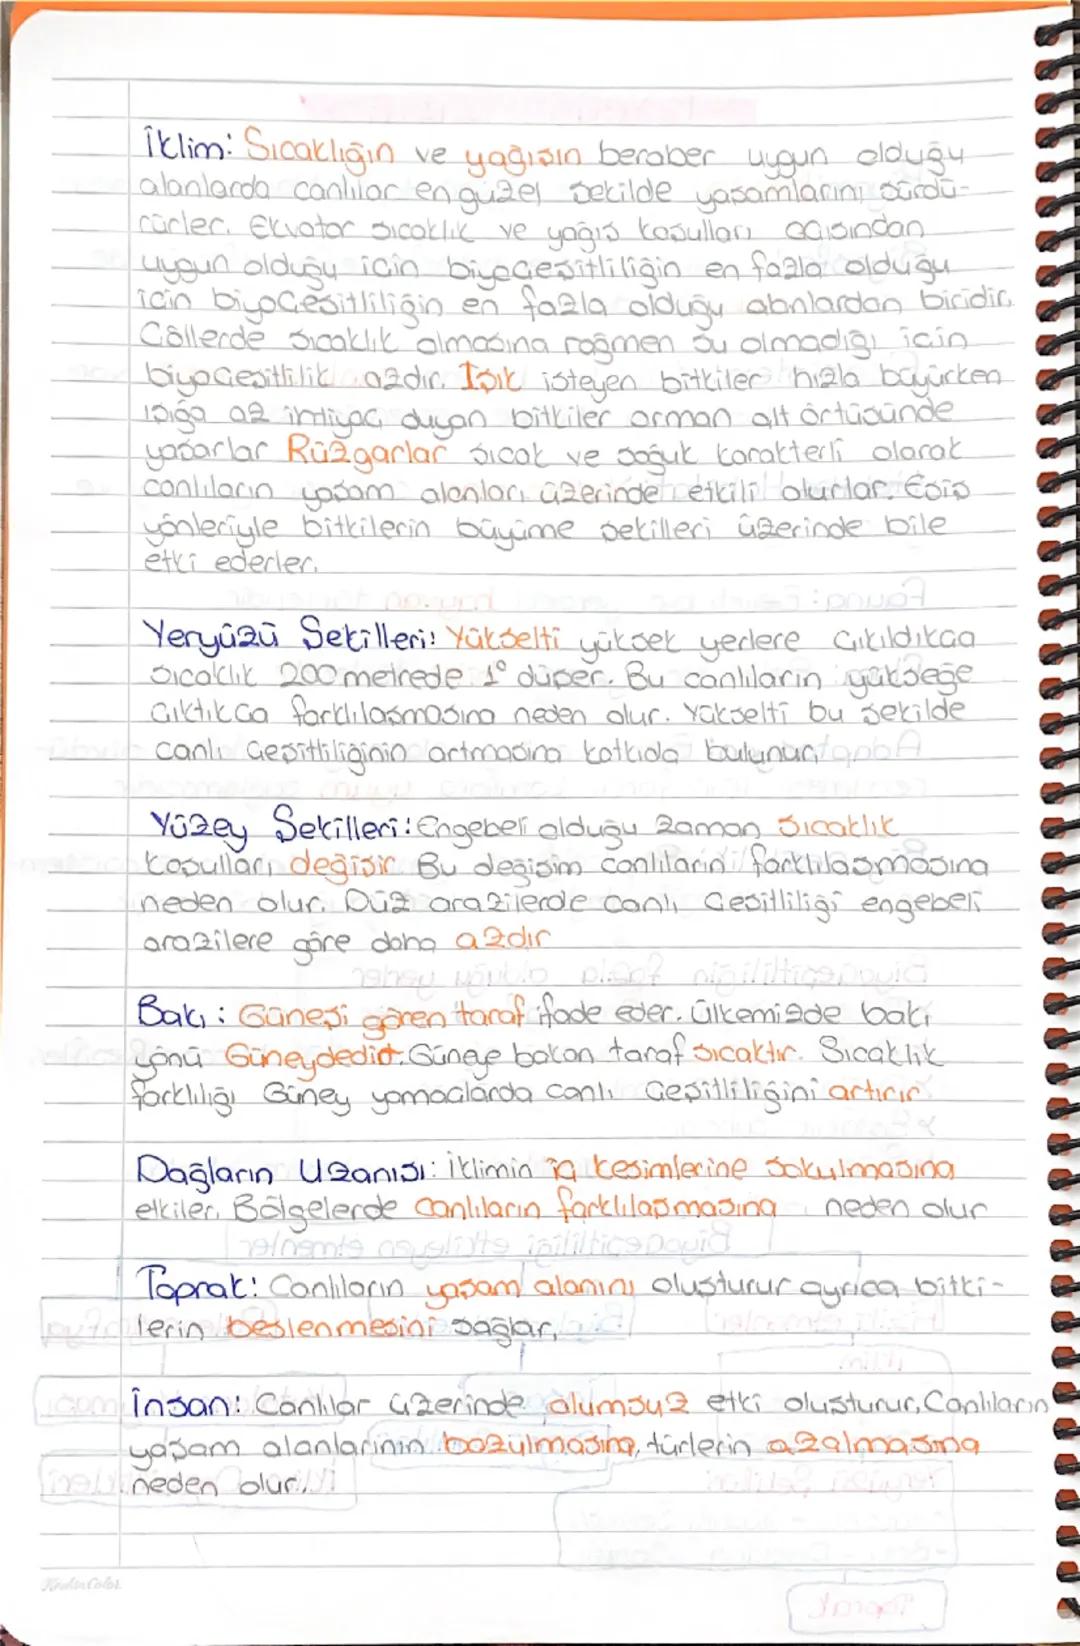 İklim: Sıcaklığın ve yağışın beraber uygun olduğu
alanlarda canlılar en güzel şekilde yaşamlarını sürdü-
rürler. Ekvator sıcaklık ve yağış koşulları açısından
uygun olduğu için biyoçeşitliliğin en fazla olduğu
için biyoçeşitliliğin en fazla olduğu alanlardan biridir.
Çöllerde sıcaklık olmasına rağmen su olmadığı için
biyoçeşitlilik azdır. Işık isteyen bitkiler hızla büyürken
ışığa az ihtiyaç duyan bitkiler orman alt örtüsünde
yaşarlar Rüzgarlar sıcak ve soğuk karakterli olarak
canlıların yaşam alanları üzerinde etkili olurlar. Esiş
yönleriyle bitkilerin büyüme şekilleri üzerinde bile
etki ederler.
Yeryüzü Şekilleri: Yükselti yüksek yerlere çıkıldıkça
sıcaklık 200 metrede 1° düşer. Bu canlıların yükseğe
çıktıkça farklılaşmasına neden olur. Yükselti bu şekilde
canlı çeşitliliğinin artmasına katkıda bulunur.
Yüzey Şekilleri: Engebeli olduğu zaman sıcaklık
koşulları değişir. Bu değişim canlıların farklılaşmasına
neden olur. Düz arazilerde canlı çeşitliliği engebeli
arazilere göre daha azdır
Bakı: Güneşi gören taraf ifade eder. Ülkemizde bakı
yönü Güneydedir. Güneye bakan taraf sıcaktır. Sıcaklık
farklılığı Güney yamaçlarda canlı çeşitliliğini artırır
Dağların Uzanışı: İklimin iç kesimlerine sokulmasına
etkiler. Bölgelerde canlıların farklılaşmasına neden olur
Toprak: Canlıların yaşam alanını oluşturur ayrıca bitki-
lerin beslenmesini sağlar.
İnsan: Canlılar üzerinde olumsuz etki oluşturur. Canlıların
yaşam alanlarının bozulmasına, türlerin azalmasına
neden olur.